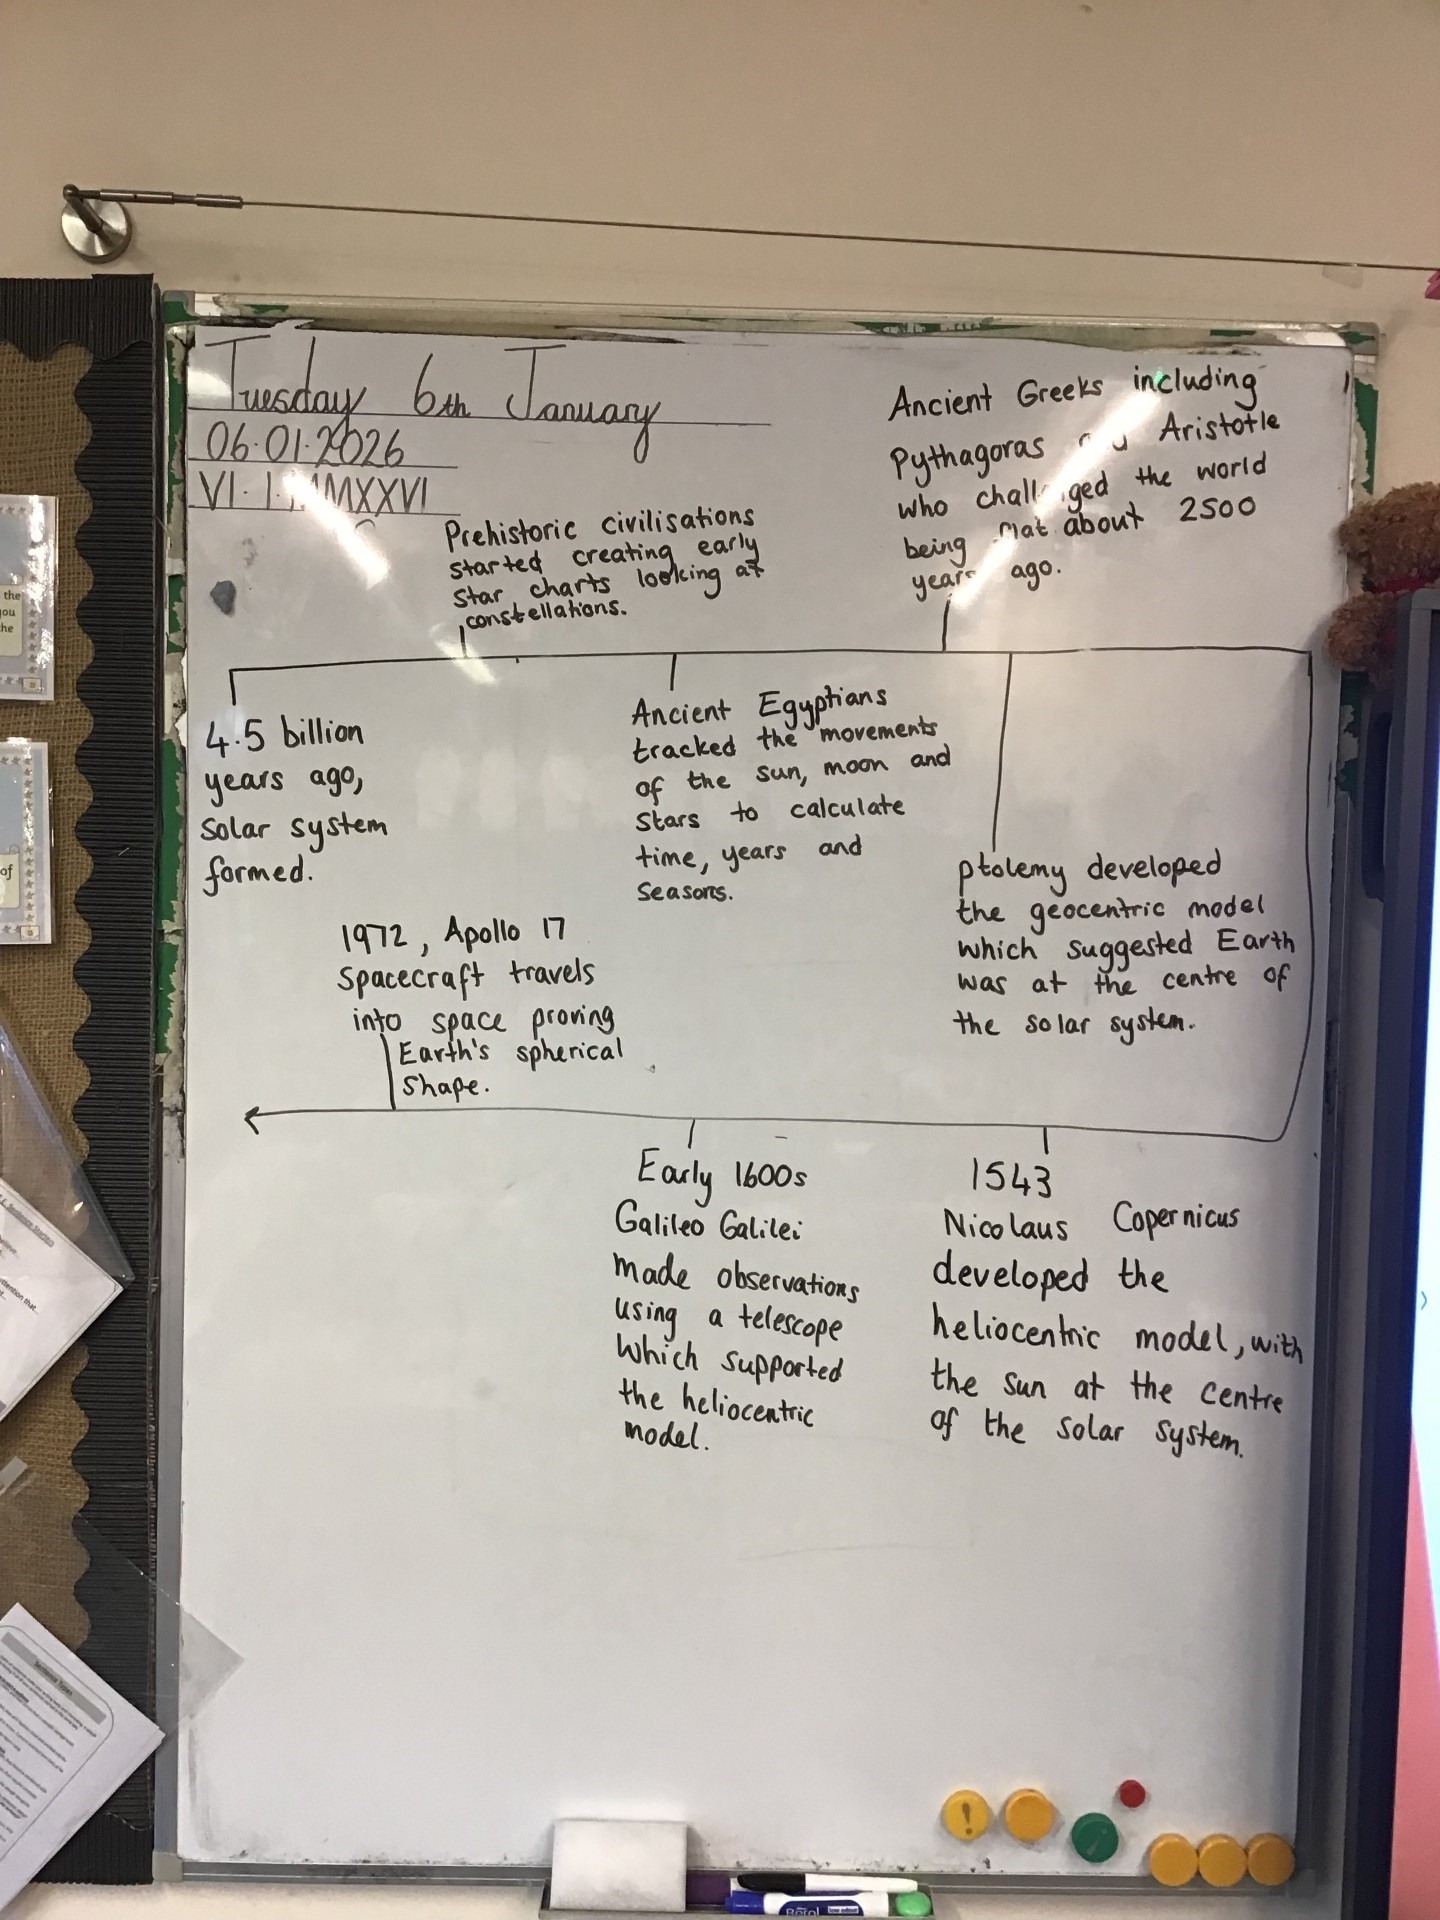 Tuesday 6th January
06.01.2026
VI. I. MMXXVI
Prehistoric civilisations
started creating early
star charts looking at
constellations.
Ancient Greeks including
Pythagoras Aristotle
who challenged the world
being flat about 2500
years ago.
4.5 billion
years ago,
solar system
formed.
Ancient Egyptians
tracked the movements
of the sun, moon and
stars to calculate
time, years and
seasons.
ptolemy developed
the geocentric model
which suggested Earth
was at the centre of
the solar system.
1543
Nicolaus Copernicus
developed the
heliocentric model, with
the sun at the centre
of the solar system.
Early 1600s
Galileo Galilei
made observations
using a telescope
which supported
the heliocentric
model.
1972, Apollo 17
spacecraft travels
into space proving
Earth's spherical
shape.
the
you
the
of
Sentence Types
Berol